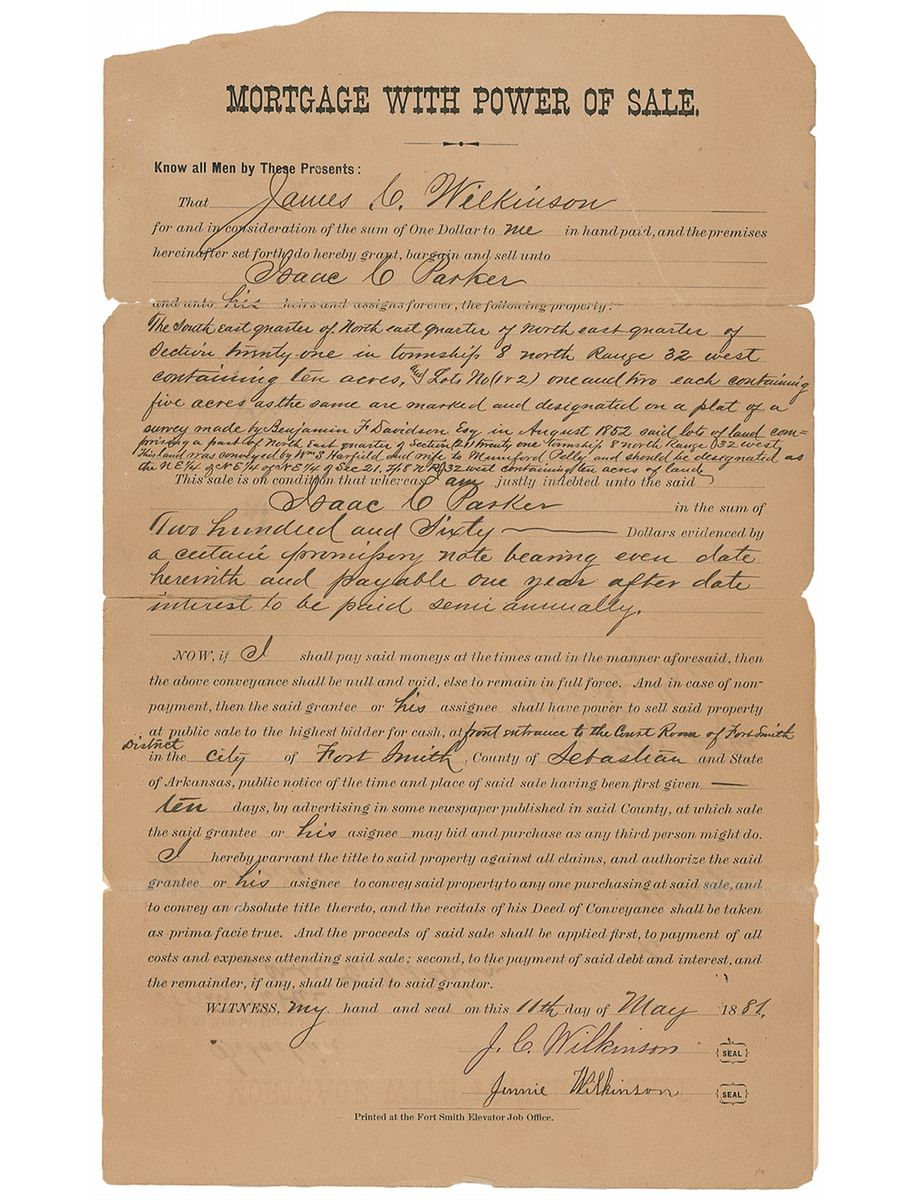 MORTGAGE WITH POWER OF SALE.
Know all Men by These Presents:
That James C. Wilkinson
for and in consideration of the sum of One Dollar to me in hand paid, and the premises
hereinafter set forth, do hereby grant, bargain and sell unto
Isaac C Parker
and unto his heirs and assigns forever, the following property:
The South east quarter of North east quarter of North east quarter of
Section twenty one in township 8 north Range 32 west
containing ten acres, and Lots No (1 & 2) one and two each containing
five acres as the same are marked and designated on a plat of a
survey made by Benjamin F Davidson Esq in August 1852 said lots of land com-
prising a part of North East quarter of Section (21) twenty one township 8 north Range 32 west
This land was conveyed by Wm S Harfield and wife to Mumford and should be designated as
the N E 1/4 of N E 1/4 of N E 1/4 of Sec 21. T 8 N R 32 west containing ten acres of land
This sale is on condition that whereas I am justly indebted unto the said
Isaac C Parker in the sum of
Two hundred and Sixty Dollars evidenced by
a certain promissory note bearing even date
herewith and payable one year after date
interest to be paid semi annually.
NOW, if I shall pay said moneys at the times and in the manner aforesaid, then
the above conveyance shall be null and void, else to remain in full force. And in case of non-
payment, then the said grantee or his assignee shall have power to sell said property
at public sale to the highest bidder for cash, at front entrance to the Court Room of Fort Smith
District
in the city of Fort Smith, County of Sebastian and State
of Arkansas, public notice of the time and place of said sale having been first given —
ten days, by advertising in some newspaper published in said County, at which sale
the said grantee or his asignee may bid and purchase as any third person might do.
I hereby warrant the title to said property against all claims, and authorize the said
grantee or his asignee to convey said property to any one purchasing at said sale, and
to convey an absolute title thereto, and the recitals of his Deed of Conveyance shall be taken
as prima facie true. And the proceeds of said sale shall be applied first, to payment of all
costs and expenses attending said sale; second, to the payment of said debt and interest, and
the remainder, if any, shall be paid to said grantor.
WITNESS, my hand and seal on this 11th day of May 1881.
J. C. Wilkinson {SEAL}
Jennie Wilkinson {SEAL}
Printed at the Fort Smith Elevator Job Office.